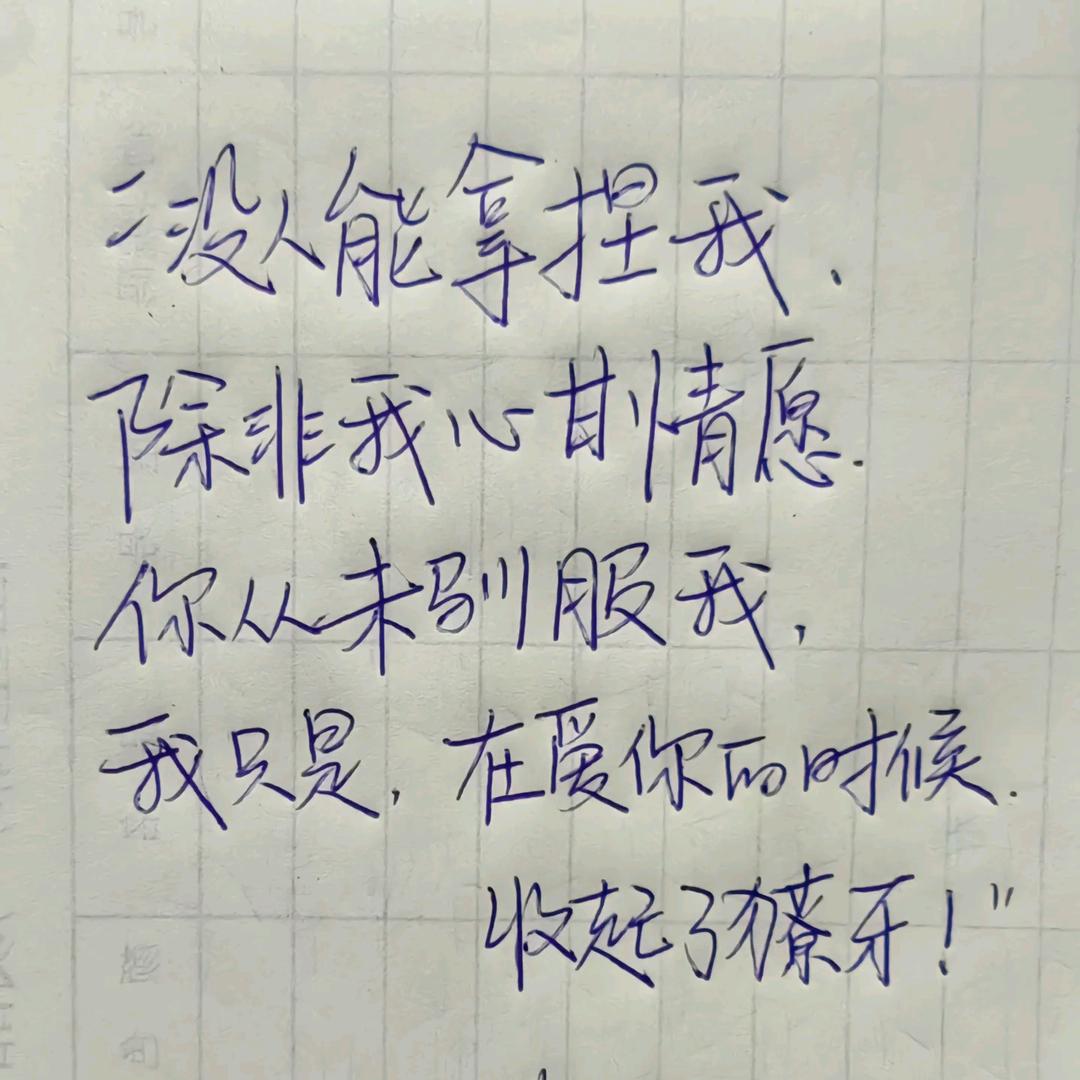 “没人能拿捏我.
除非我心甘情愿.
你从未驯服我,
我只是,在爱你的时候.
收起了獠牙!”